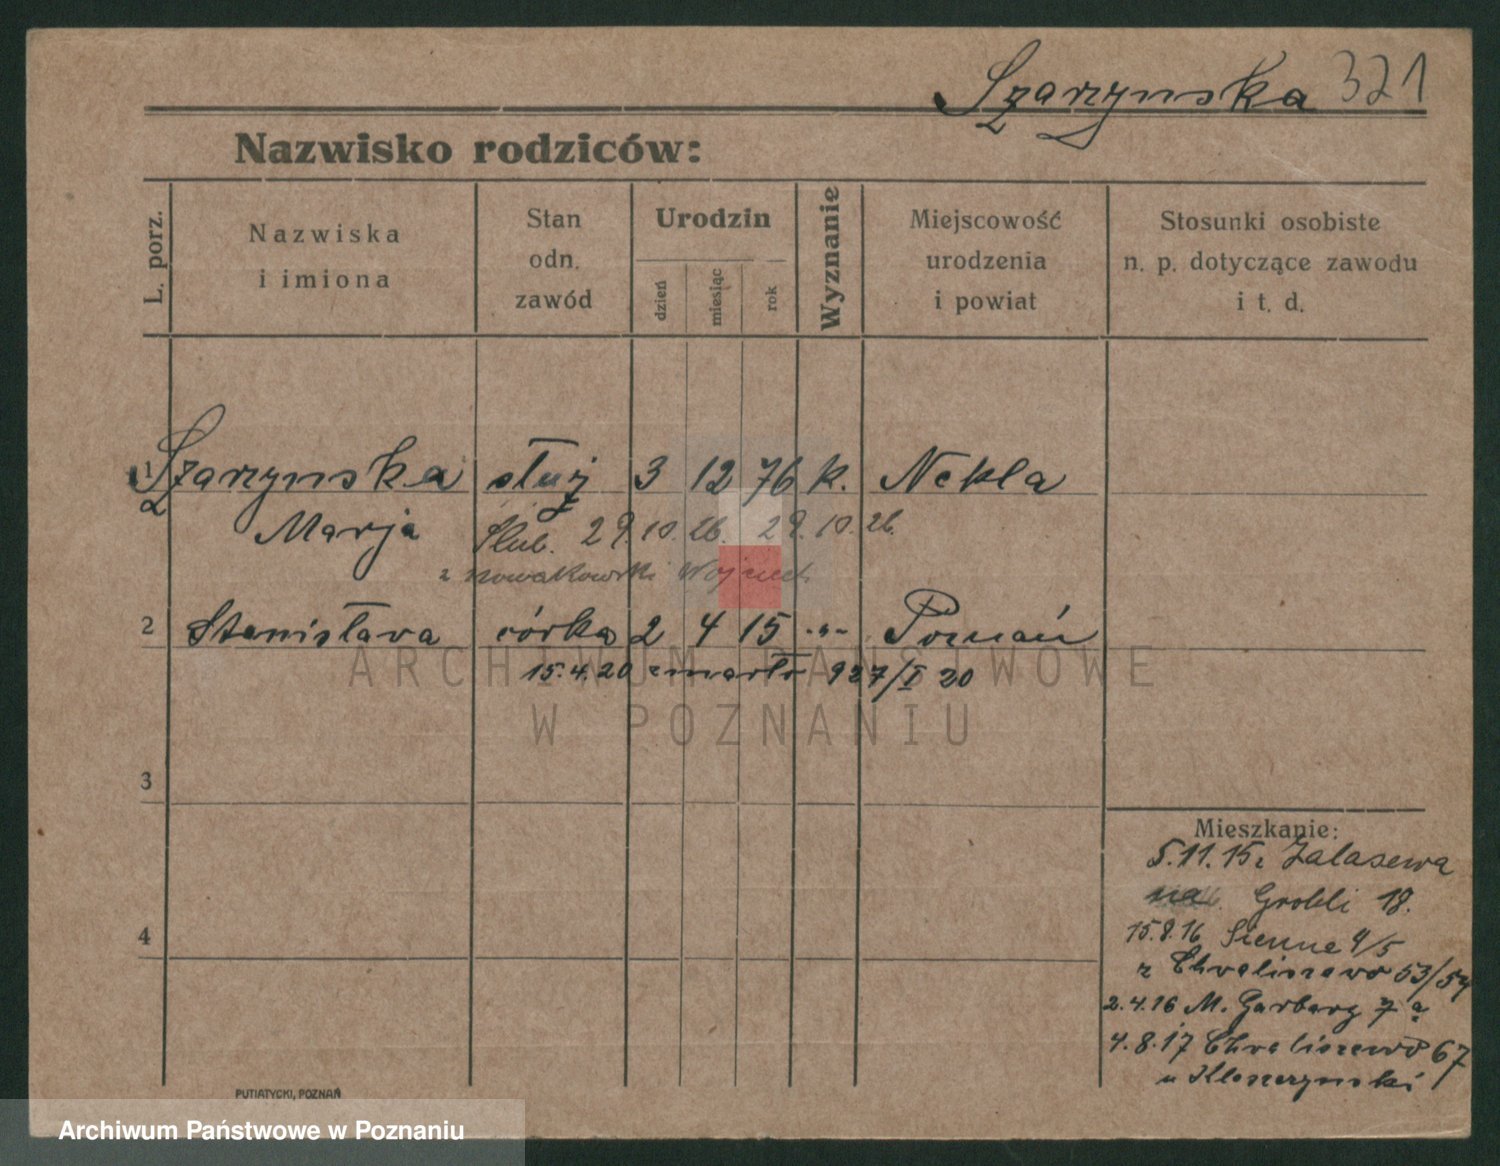 Szarzynska 321
Nazwisko rodziców:
L. porz.
Nazwiska
i imiona
Stan
odn.
zawód
Urodzin
dzień
miesiąc
rok
Wyznanie
Miejscowość
urodzenia
i powiat
Stosunki osobiste
n. p. dotyczące zawodu
i t. d.
1 Szarzynska służ 3 12 76 k. Nekla
Marja Ślub. 29.10.26. 29.10.26.
z Nowakowski Wojciech
2 Stanisława córka 2 4 15 -"- Poznań
15.4.20 zmarła 927/I 20
ARCHIWUM PAŃSTWOWE
W POZNANIU
3
4
Mieszkanie:
5.11.15 z Zalasewa
Grobli 18.
15.8.16 Sienna 4/5
z Chwaliszewo 53/54
2.4.16 M. Garbary 7a
4.8.17 Chwaliszewo 67
u
PUTIATYCKI, POZNAŃ
Archiwum Państwowe w Poznaniu